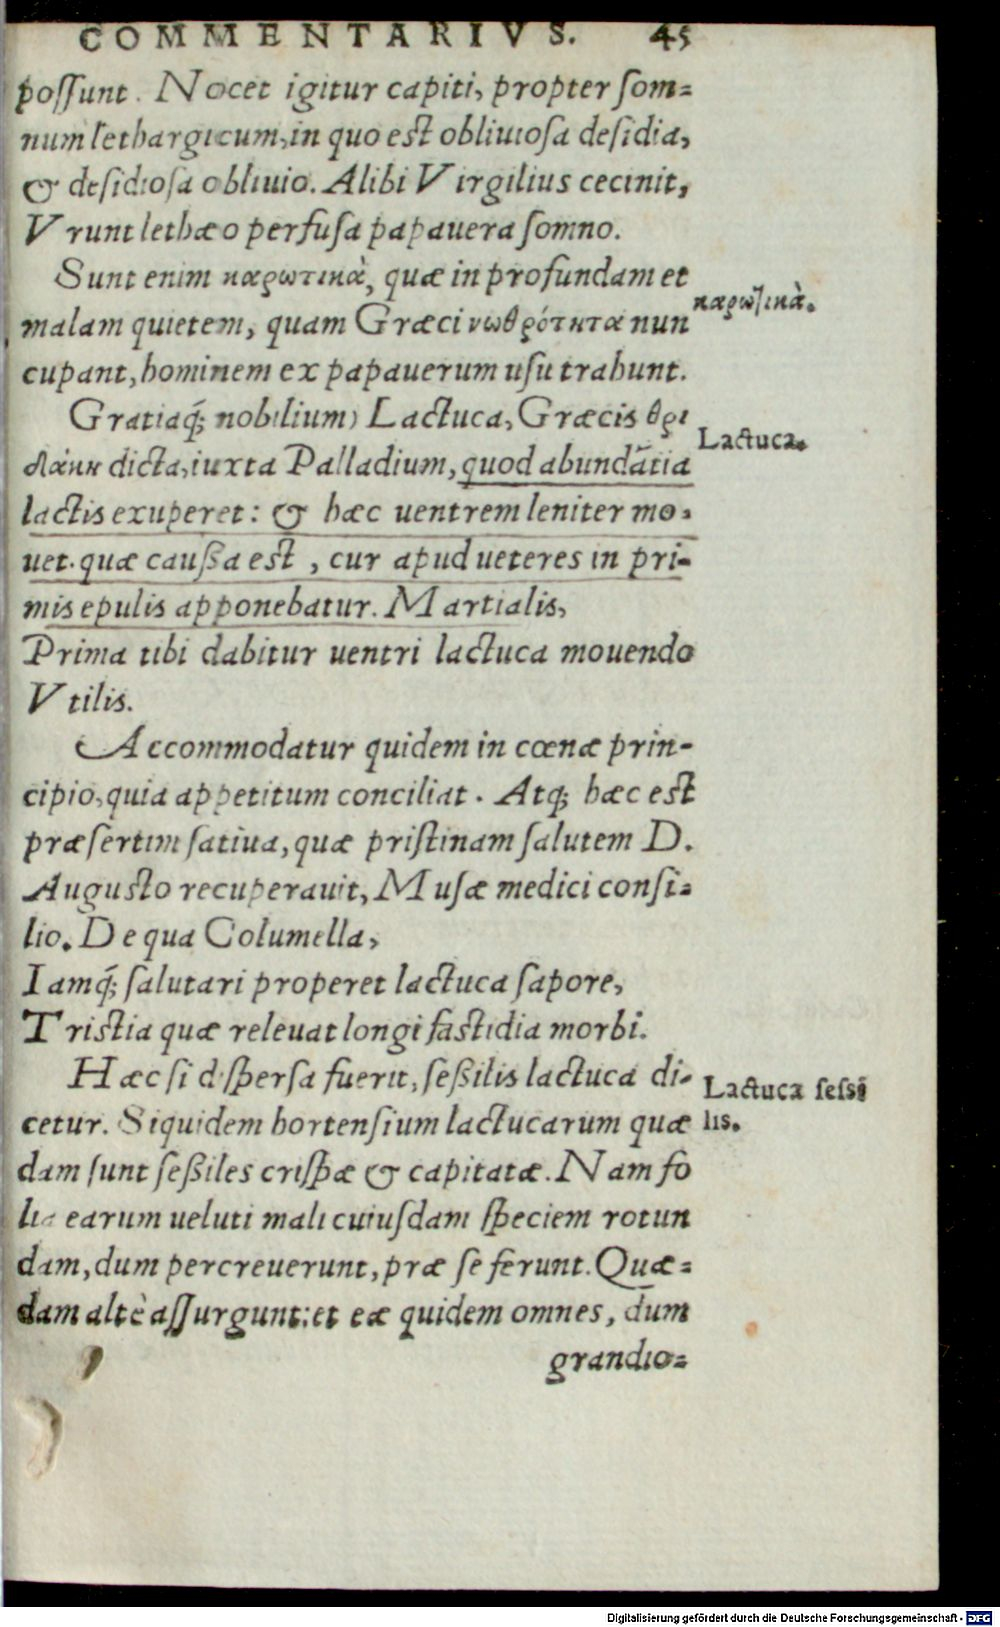 COMMENTARIVS. 45
poſſunt. Nocet igitur capiti, propter ſom=
num lethargicum, in quo eſt obliuioſa deſidia,
& deſidioſa obliuio. Alibi Virgilius cecinit,
Vrunt lethæo perfuſa papauera ſomno.
Sunt enim καρωτικὰ, quæ in profundam et
καρωτικὰ.
malam quietem, quam Græci νωθρότητα nun
cupant, hominem ex papauerum uſu trahunt.
Gratiaq́; nobilium) Lactuca, Græcis θρι
Lactuca.
δάκη dicta, iuxta Palladium, quod abundãtia
lactis exuperet: & hæc uentrem leniter mo=
uet. quæ cauſſa eſt, cur apud ueteres in pri=
mis epulis apponebatur. Martialis,
Prima tibi dabitur uentri lactuca mouendo
Vtilis.
Accommodatur quidem in cœnæ prin=
cipio, quia appetitum conciliat. Atq; hæc eſt
præſertim ſatiua, quæ priſtinam ſalutem D.
Auguſto recuperauit, Muſæ medici conſi=
lio. De qua Columella,
Iamq́; ſalutari properet lactuca ſapore,
Triſtia quæ releuat longi faſtidia morbi.
Hæc ſi diſperſa fuerit, ſeßilis lactuca di=
Lactuca seſsi
cetur. Siquidem hortenſium lactucarum quæ
lis.
dam ſunt ſeßiles criſpæ & capitatæ. Nam fo
lia earum ueluti mali cuiuſdam ſpeciem rotun
dam, dum percreuerunt, præ ſe ferunt. Quæ=
dam altè aſſurgunt: et eæ quidem omnes, dum
grandio=
Digitalisierung gefördert durch die Deutsche Forschungsgemeinschaft - DFG